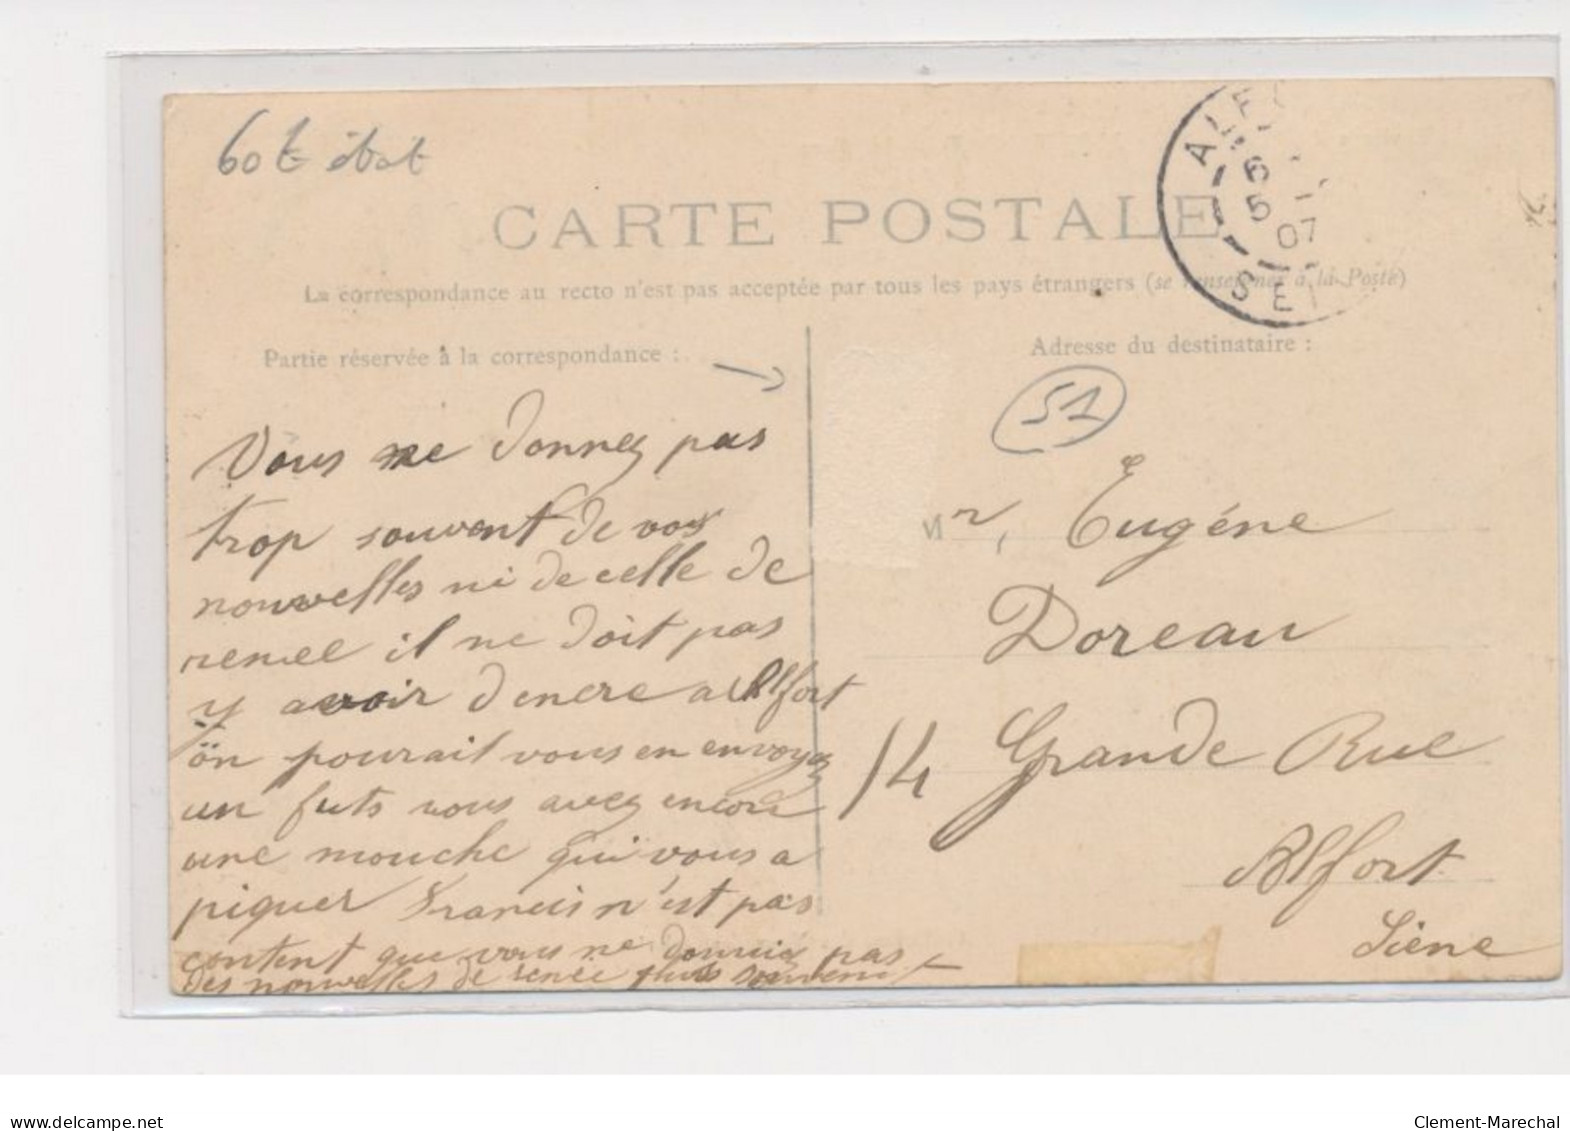 60t état
ALF
6
5
07
SEI
CARTE POSTALE
La correspondance au recto n'est pas acceptée par tous les pays étrangers (se renseigner à la Poste)
Partie réservée à la correspondance :
Adresse du destinataire :
51
Vous me donnez pas
trop souvent de vos
nouvelles ni de celle de
renee il ne doit pas
y avoir d'encre a Alfort
on pourait vous en envoyez
un futs vous avez encore
une mouche qui vous a
piquer Francis n'est pas
content que vous ne donniez pas
des nouvelles de renée plus souvent
Mr, Eugéne
Doreau
14 Grande Rue
Alfort
Siéne
www.delcampe.net
Clement-Marechal